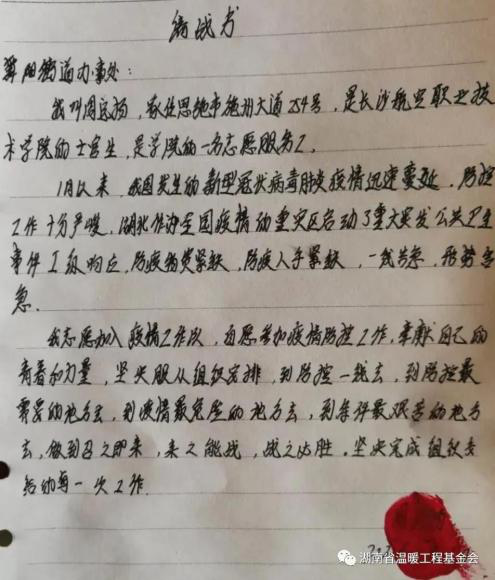 请战书
舞阳街道办事处:
我叫周远扬,家住恩施市施州大道254号,是长沙航空职业技
术学院的士官生,是学院的一名志愿服务工。
1月以来,我国发生的新型冠状病毒肺炎疫情迅速蔓延,防控
工作十分严峻,湖北作为全国疫情的重灾区启动了重大突发公共卫生
事件I级响应,防疫物资紧缺,防疫人手紧缺,一线告急,形势告
急.
我志愿加入疫情工作队,自愿参加疫情防控工作,奉献自己的
青春和力量,坚决服从组织安排,到防控一线去,到防控最
需要的地方去,到疫情最危险的地方去,到条件最艰苦的地方
去,做到召之即来,来之能战,战之必胜.坚决完成组织交
给的每一次工作.
湖南省温暖工程基金会